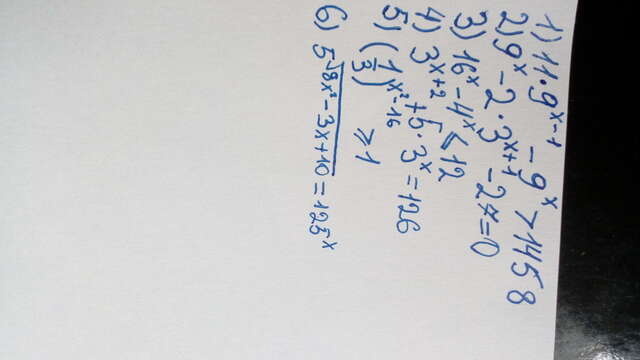 1) 11·9^{x-1} - 9^x > 1458
2) 9^x - 2·3^{x+1} - 27 = 0
3) 16^x - 4^x < 12
4) 3^{x+2} + 5·3^x = 126
5) (1/3)^{x²-16} ≥ 1
6) 5^{√(8x²-3x+10)} = 125^x